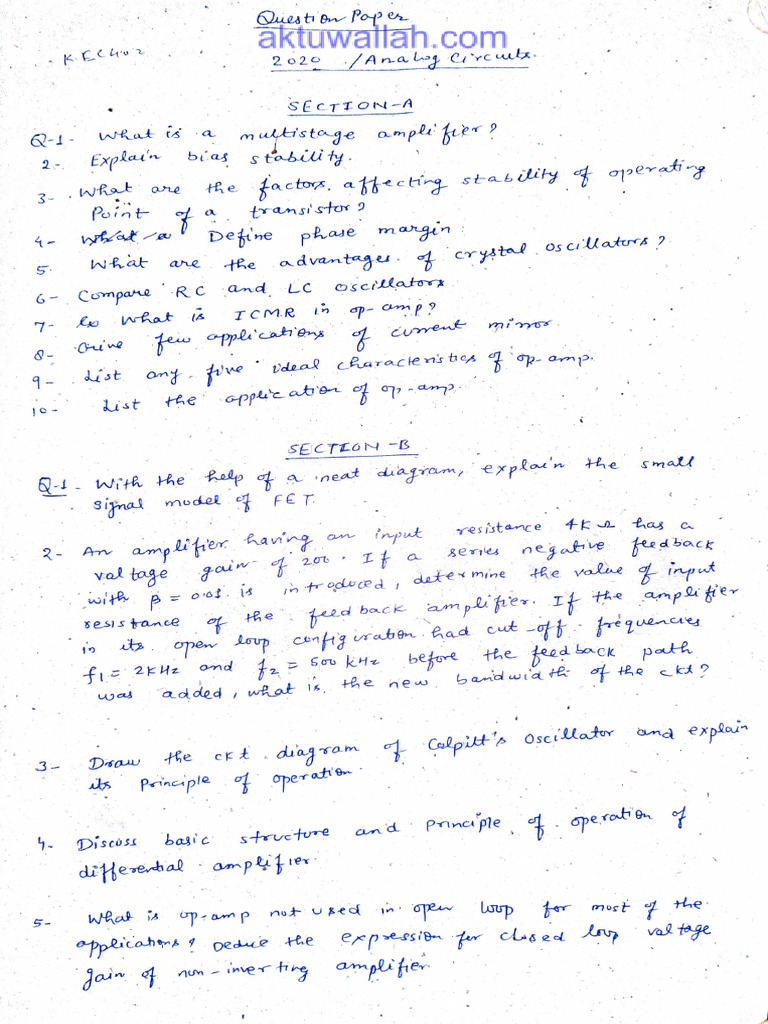 Question Paper
aktuwallah.com
KEC402
2020 /Analog Circuits.
SECTION-A
Q-1- What is a multistage amplifier?
2-. Explain bias stability.
3- What are the factors affecting stability of operating
Point of a transistor?
4- What a Define phase margin.
5. What are the advantages of crystal oscillators?
6- Compare RC and LC oscillators.
7- Ex What is ICMR in op-amp?
8- Give few applications of current mirror
9- List any five ideal characteristics of op-amp.
10- List the application of op-amp.
SECTION-B
Q-1- With the help of a neat diagram, explain the small
signal model of FET.
2- An amplifier having an input resistance 4KΩ has a
voltage gain of 200. If a series negative feedback
with β = 0.01 is introduced, determine the value of input
resistance of the feedback amplifier. If the amplifier
in its open loop configuration had cut-off frequencies
f1 = 2KHz and f2 = 500 KHz before the feedback path
was added, what is the new bandwidth of the ckt?
3- Draw the ckt diagram of Colpitt's Oscillator and explain
its Principle of operation.
4. Discuss basic structure and principle of operation of
differential amplifier.
5- What is op-amp not used in open loop for most of the
applications? Deduce the expression for closed loop voltage
gain of non-inverting amplifier.